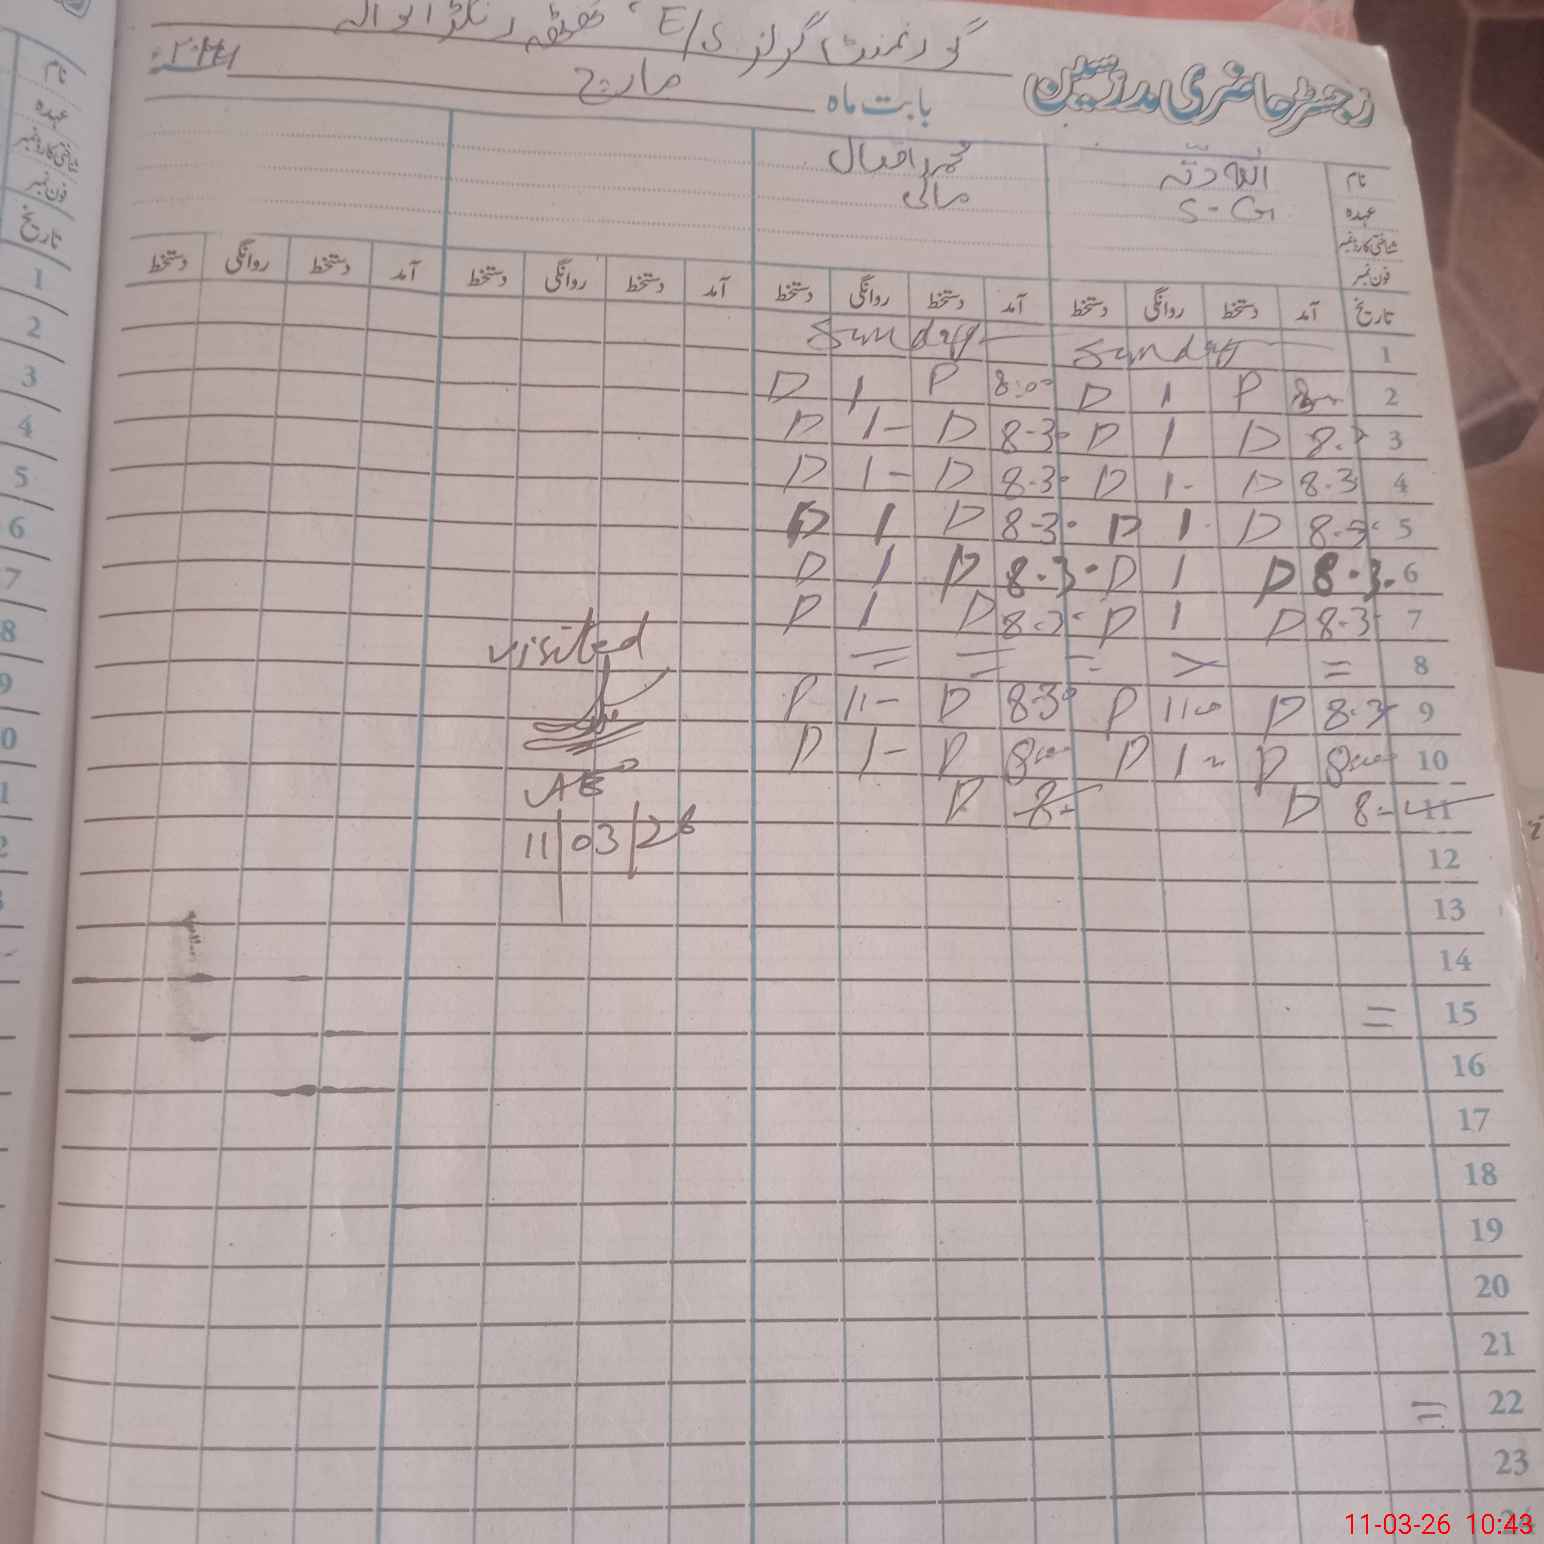 گورنمنٹ گرلز E/S
رجسٹر حاضری مدرسین
بابت ماہ مارچ
نام اللہ دتہ محمد اقبال
عہدہ S-G مالی
شناختی کارڈ نمبر
فون نمبر
تاریخ آمد دستخط روانگی دستخط آمد دستخط روانگی دستخط آمد دستخط روانگی دستخط آمد دستخط روانگی دستخط
1 Sunday Sunday
2 P 1 D 8:00 P 1 D
3 D 1 D 8-30 D 1- D
4 8.3 D 1- D 8.30 D 1- D
5 D 1 D 8-30 D 1 D
6 8.3. D 1 D 8.3. D 1 D
7 8-3 D 1 D D 1 D
8 = = =
9 D 110 P 830 D 11- P
10 800 D 1- D 800 D 1- D
11 8- D 8- D
visited
AEO
11/03/26
12
13
14
15 =
16
17
18
19
20
21
22 =
23
24
نام
عہدہ
شناختی کارڈ نمبر
فون نمبر
تاریخ
1
2
3
4
5
6
7
8
9
0
1
2
11-03-26 10:43